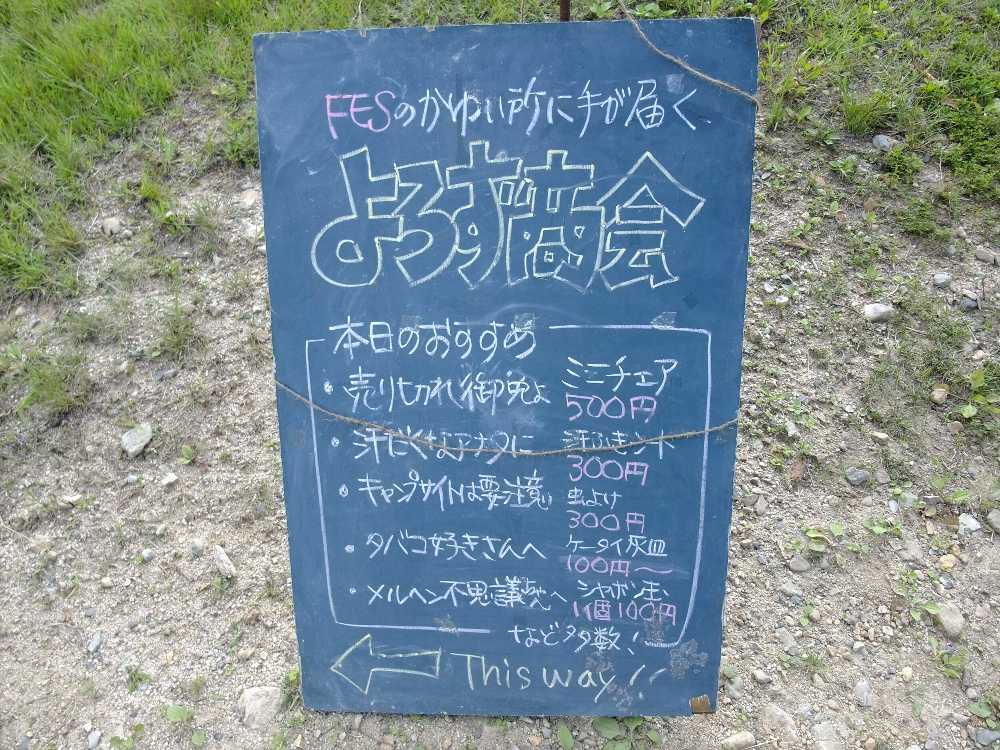 FESのかゆい所に手が届く
よろず商会
本日のおすすめ
・売り切れ御免よ ミニチェア
500円
・汗だくなアナタに 汗ふきシート
300円
・キャンプサイトは要注意! 虫よけ
300円
・タバコ好きさんへ ケータイ灰皿
100円～
・メルヘン不思議ちゃんへ シャボン玉
1個100円
など多数!
This way!!